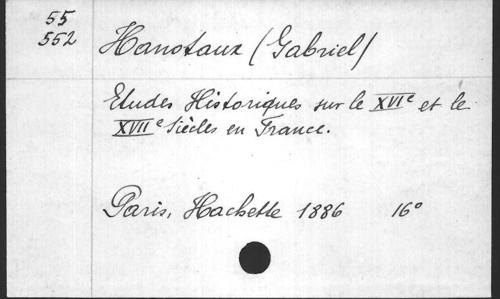 55
552
Hanotaux (Gabriel)
Etudes Historiques sur le XVIe et le
XVIIe Siècles en France.
Paris, Hachette 1886 16°